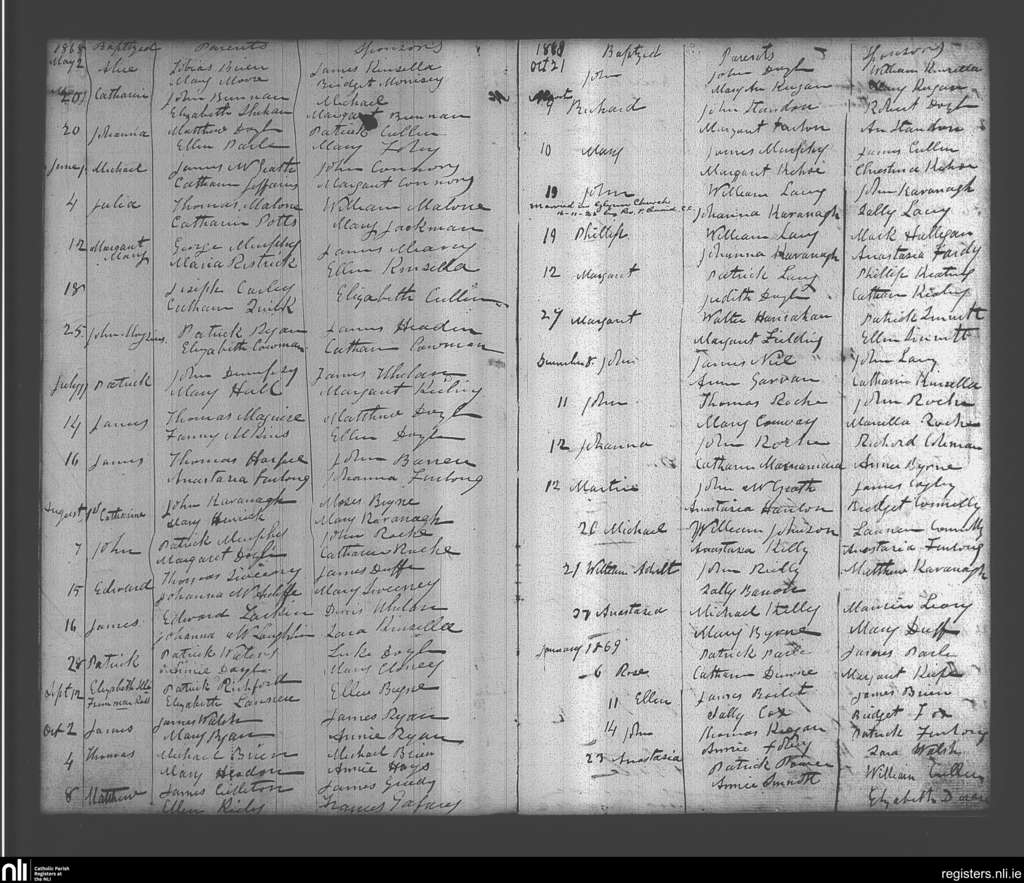 1868 Baptized Parents Sponsors
May 2 Alice Tobias Brien James Kinsella
Mary Moore Bridget Morrisey
20 Catharin John Brennan Michael
Elizabeth Margaret Brennan
20 Johanna Matthew Doyle Patrick Cullen
Ellen Parle Mary Foley
June 1 Michael James McGrath John Connors
Catharn Jeffaris Margaret Connors
4 Julia Thomas Malone William Malone
Catharin Potts Mary Jookman
12 Margaret George Murphy James Meaney
Mary Maria Restrick Ellen Kinsella
18 Joseph Carley Elizabeth Cullen
Catharn Quirk
25 John Patrick Ryan James Headen
Elizabeth Cowman Catharn Cowman
July Patrick John Dempsy James Whelan
Mary Hall Margaret
14 James Thomas Maguire Matthew Doyle
Fanny Ellen Doyle
16 James Thomas Harper John Barren
Anastasia Furlong Johanna Furlong
August 1st Catherine John Kavanagh Moses Byrne
Mary Mary Kavanagh
7 John Patrick Murphy John Roche
Margaret Doyle Catharn Roche
15 Edward Thomas Sweeney James Duffe
Johanna Mary Sweeney
16 James Edward Larkin Denis Whelan
Johanna McLaughlin Zara Kinsella
28 Patrick Patrick Waters Luke Doyle
Annie Doyle Mary Clancy
Sept 12 Elizabeth Patrick Pichford Ellen Byrne
Elizabeth
Oct 2 James James Walsh James Ryan
Mary Ryan Annie Ryan
4 Thomas Michael Brien Michael Brien
Mary Headon Annie Hays
8 Matthew James Culleton James Grady
Ellen Kiely
1868 Baptized Parents Sponsors
Oct 21 John John Doyle William Kinsella
Mary An Keegan Mary Kegan
9 Richard John Standon Robert Doyle
Margaret An Standon
10 Mary James Murphy James Cullen
Margaret Kehoe Christina Kehoe
19 John William Lacy John Kavanagh
Married in Glynn Church
Johanna Kavanagh Sally Lacy
19 Phillip William Lacy Mark Hallegan
Johanna Kavanagh Anastasia Fardy
12 Margaret Patrick Lacy Phillip Keating
Judith Doyle Cathern Keating
27 Margaret Walter Hanrahan Patrick Sinnott
Margaret Fielding Ellen Sinnott
December 8 John James Neil John Lacy
Ann Garvan Catharin Kinsella
11 John Thomas Roche John Roche
Mary Conway Marcella Roche
12 Johanna John Roche Richard Coleman
Catharn Macnamara Annie Byrne
12 Martin John McGrath James Cogley
Anastasia Hanlon Bridget Connelly
26 Michael William Johnson Connelly
Anastasia Kelly Anastasia Furlong
21 William Adult John Kelly Matthew Kavanagh
Sally Barron
27 Anastasia Michael Kelly Maurice Leary
Mary Byrne Mary Duff
January 1869 Patrick Parle James Parle
6 Rose Catharn Dunne Margaret Keefe
11 Ellen James Bartet James Brien
Sally Cox Bridget Fox
14 John Thomas Keegan Patrick Furlong
Annie Foley Zara Walsh
23 Anastasia Patrick Power William Cullen
Annie Sinnott Elizabeth
nli
Catholic Parish
Registers at
the NLI
registers.nli.ie